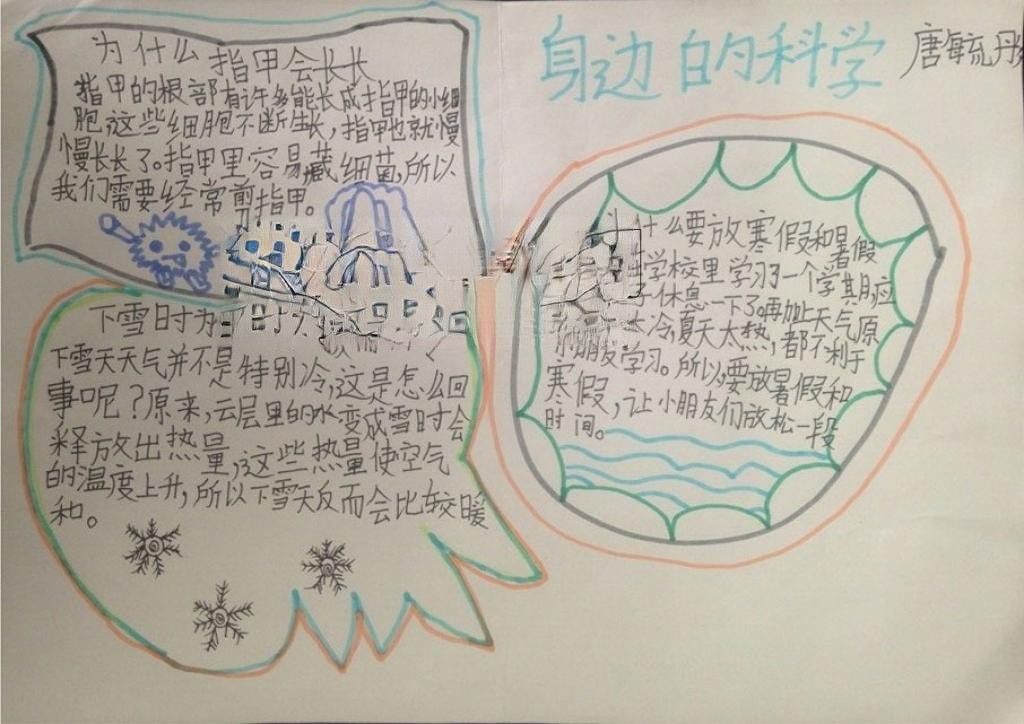 身边的科学
唐毓
为什么指甲会长长
指甲的根部有许多能长成指甲的小细
胞,这些细胞不断生长,指甲也就慢
慢长长了。指甲里容易藏细菌,所以
我们需要经常剪指甲。
下雪时为
下雪天天气并不是特别冷,这是怎么回
事呢?原来,云层里的水变成雪时会
释放出热量,这些热量使空气
的温度上升,所以下雪天反而会比较暖
和。
什么要放寒假和暑假
学校里学习了一个学期,应
休息一下了。再加上天气原
太冷,夏天太热,都不利于
朋友学习。所以,要放暑假和
寒假,让小朋友们放松一段
时间。